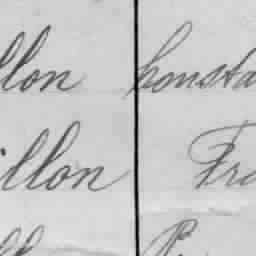 llon honsta
illon Fra